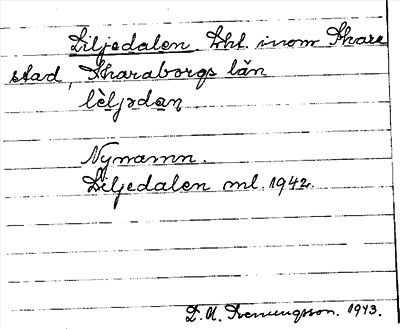 Liljedalen. Lht. inom Skara
stad, Skaraborgs län
lèljədaṇ
Nynamn.
Liljedalen ml. 1942.
D. A. Svenungsson. 1943.